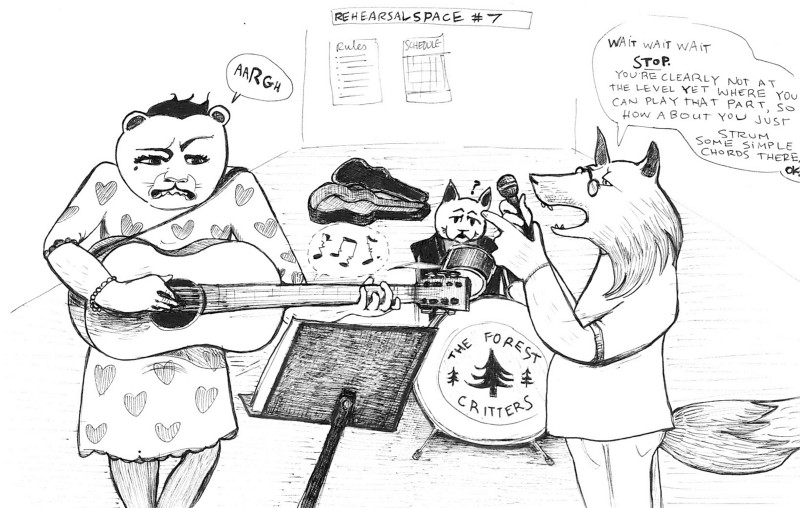 REHEARSAL SPACE #7
Rules
SCHEDULE
AARGH
WAIT WAIT WAIT
STOP.
YOU'RE CLEARLY NOT AT
THE LEVEL YET WHERE YOU
CAN PLAY THAT PART, SO
HOW ABOUT YOU JUST
STRUM
SOME SIMPLE
CHORDS THERE,
OK
?
THE FOREST
CRITTERS